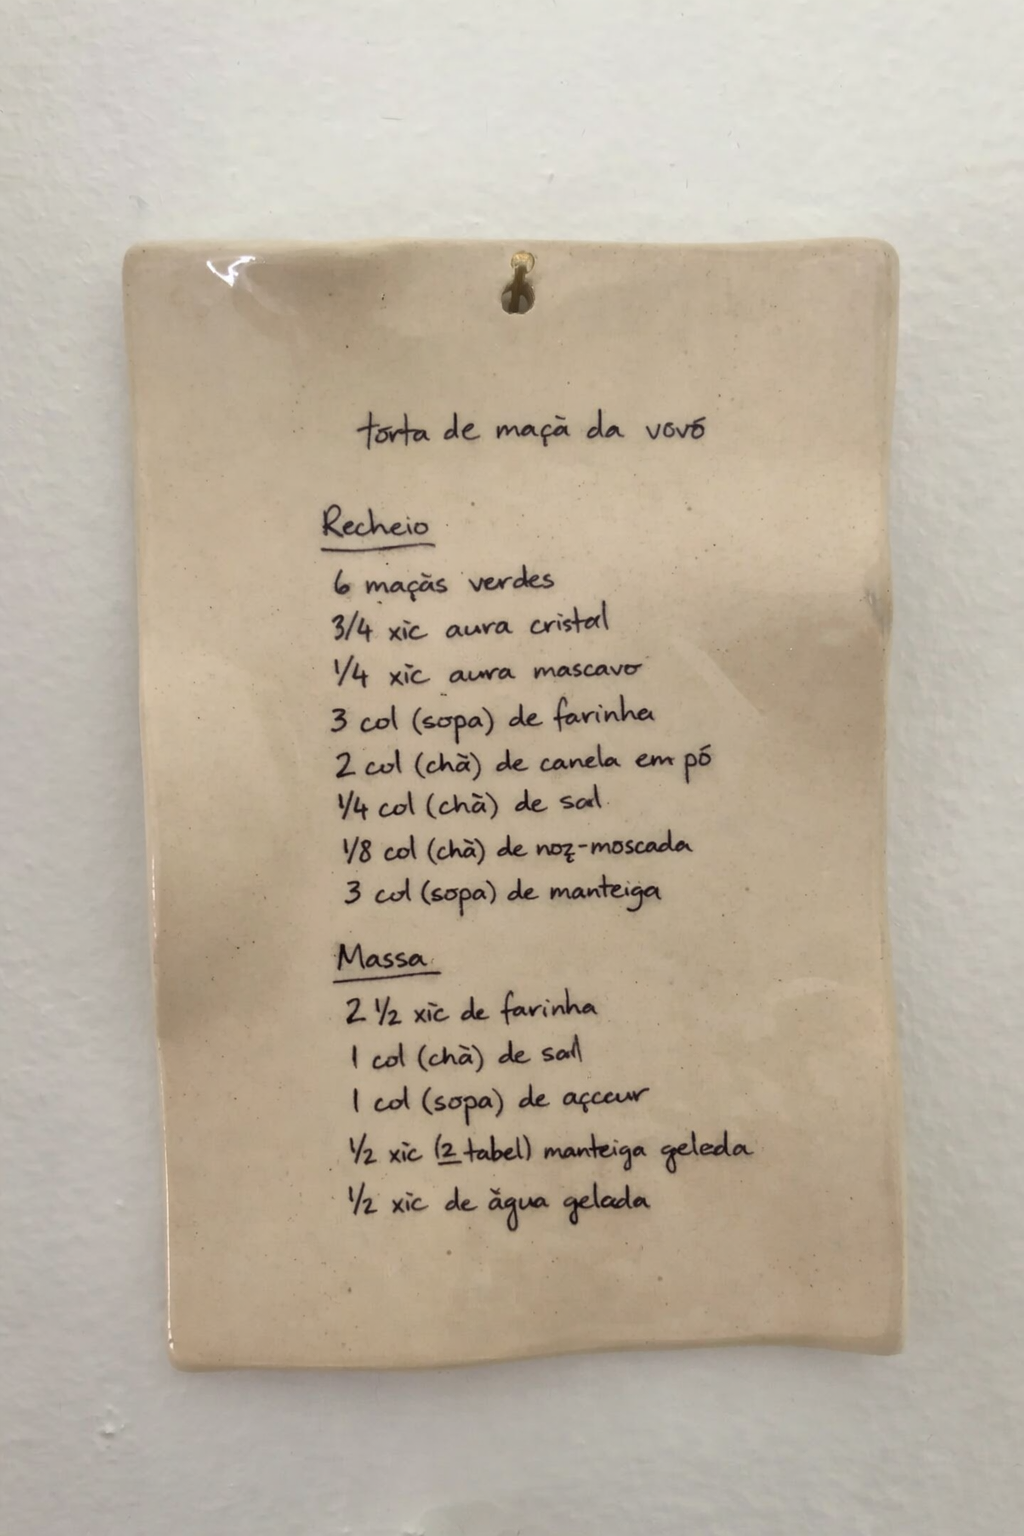 torta de maçà da vovó
Recheio
6 maçàs verdes
3/4 xic aura cristal
1/4 xic aura mascavo
3 col (sopa) de farinha
2 col (chà) de canela em pó
1/4 col (chà) de sal
1/8 col (chà) de noz-moscada
3 col (sopa) de manteiga
Massa
2 1/2 xic de farinha
1 col (chà) de sal
1 col (sopa) de
1/2 xic (2 tabel) manteiga geleda
1/2 xic de água gelada